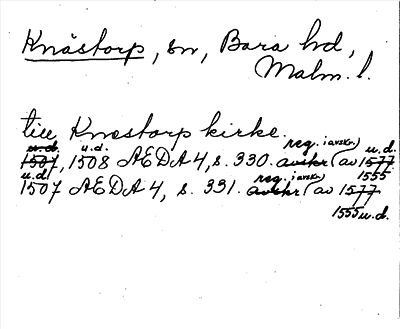 Knästorp, sn, Bara hd,
Malm. l.
till Knæstorp kirke.
u.d. u.d. reg. i avskr.) u.d.
1507, 1508 AEDA 4, s. 330. avskr (av 1577
u.d. reg. i avskr.) 1555
1507 AEDA 4, s. 331. avskr (av 1577
1555 u.d.